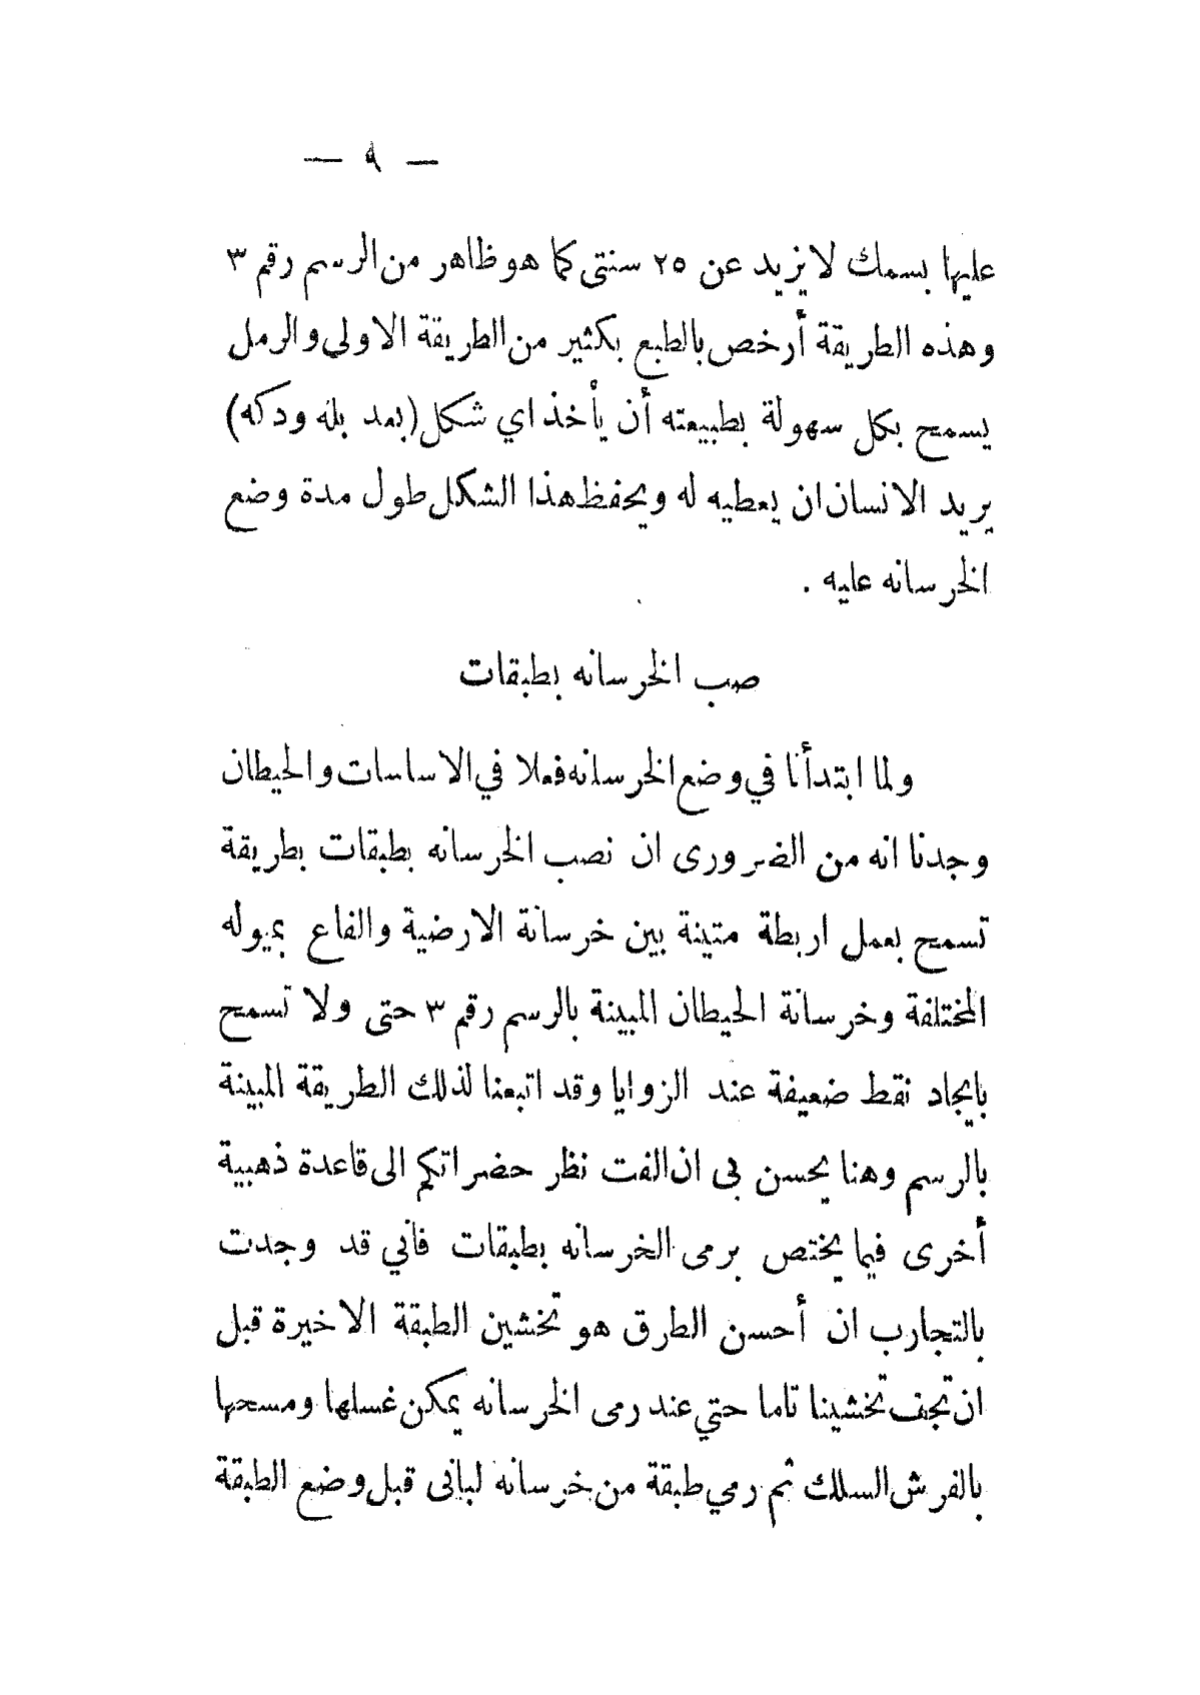 — ٩ —
عليها بسمك لا يزيد عن ٢٥ سنتى كما هو ظاهر من الرسم رقم ٣
وهذه الطريقة أرخص بالطبع بكثير من الطريقة الاولى والرمل
يسمح بكل سهولة بطبيعته أن يأخذ اي شكل (بعد بله ودكه)
يريد الانسان ان يعطيه له ويحفظ هذا الشكل طول مدة وضع
الخرسانه عليه .
صب الخرسانه بطبقات
ولما ابتدأنا في وضع الخرسانه فعلا في الاساسات والحيطان
وجدنا انه من الضرورى ان نصب الخرسانه بطبقات بطريقة
تسمح بعمل اربطة متينة بين خرسانة الارضية والقاع بميوله
المختلفة وخرسانة الحيطان المبينة بالرسم رقم ٣ حتى ولا تسمح
بايجاد نقط ضعيفة عند الزوايا وقد اتبعنا لذلك الطريقة المبينة
بالرسم وهنا يحسن بى ان الفت نظر حضراتكم الى قاعدة ذهبية
أخرى فيما يختص برمى الخرسانه بطبقات فأني قد وجدت
بالتجارب ان أحسن الطرق هو تخشين الطبقة الاخيرة قبل
ان تجف تخشينا تاما حتي عند رمى الخرسانه يمكن غسلها ومسحها
بالفرش السلك ثم رمي طبقة من خرسانه لبانى قبل وضع الطبقة